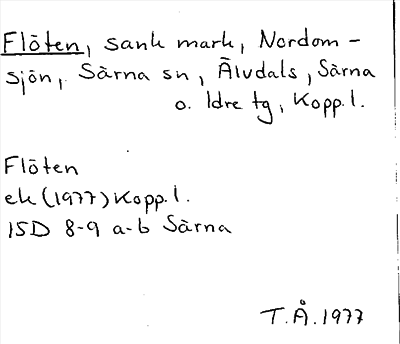 Flöten, sank mark, Nordom-
sjön, Särna sn, Älvdals, Särna
o. Idre tg, Kopp.l.
Flöten
ek (1977) Kopp.l.
15D 8-9 a-b Särna
T.Å.1977